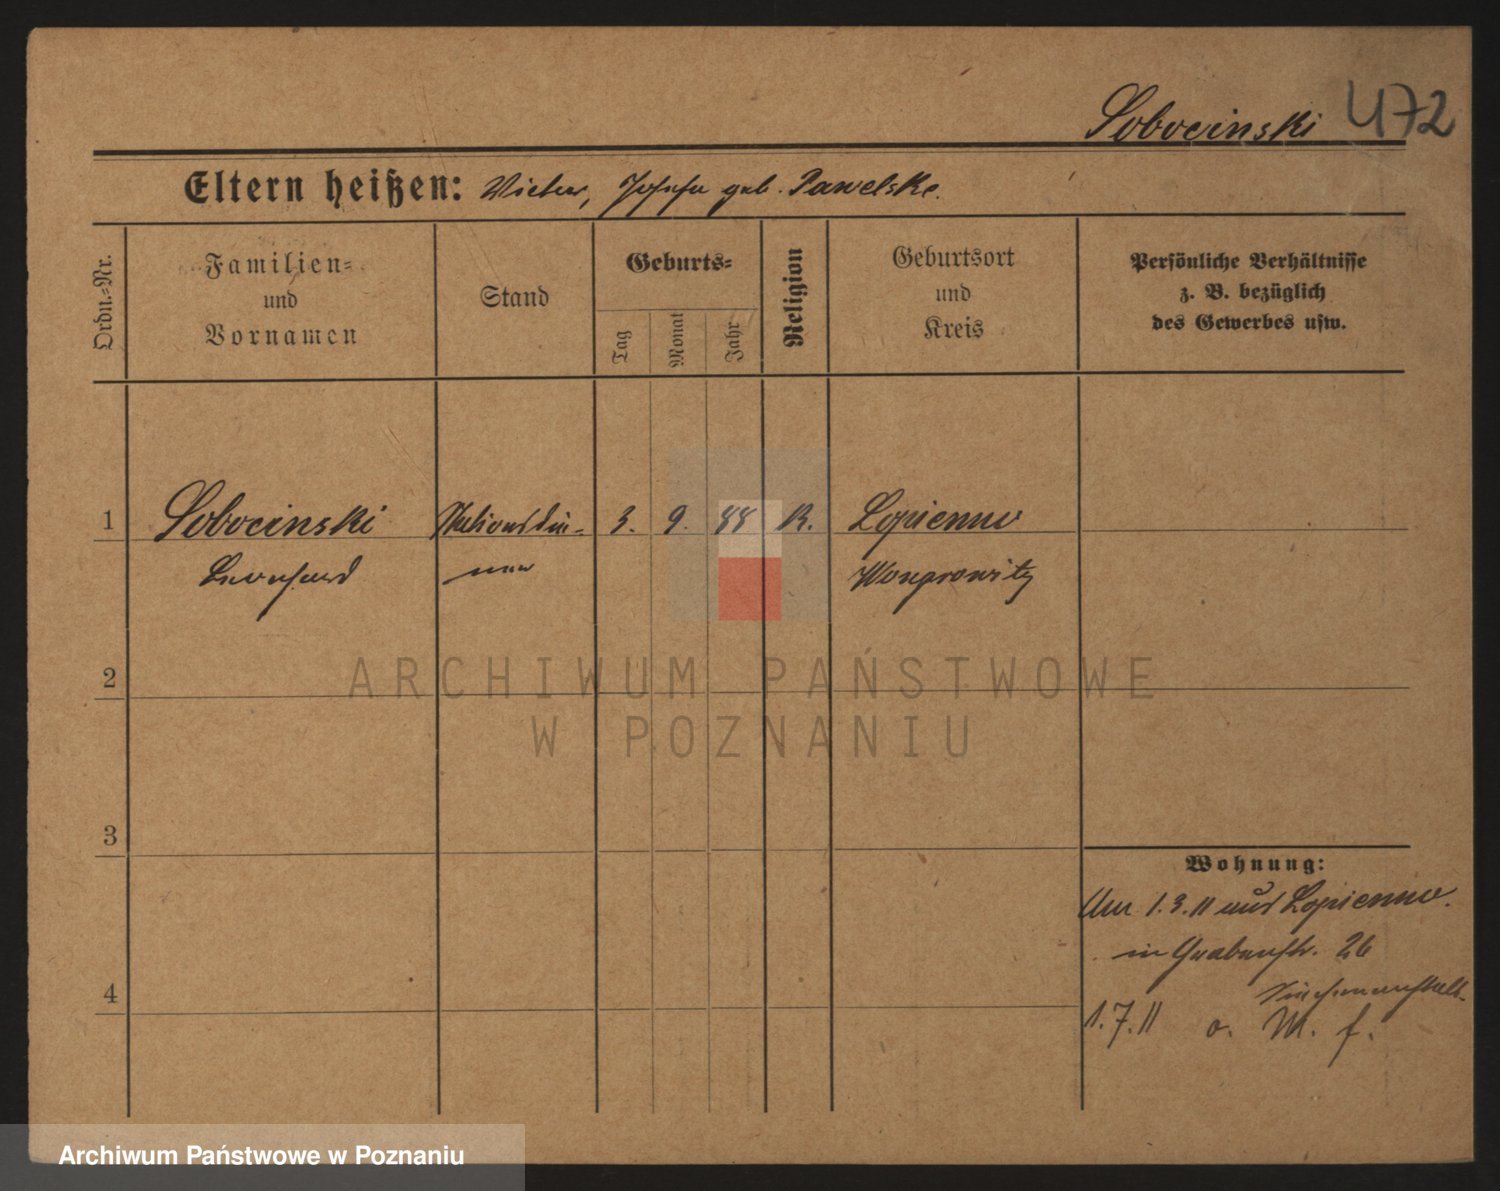 Sobocinski 472
Eltern heißen: Victor, Josefa geb. Pawelske.
Ordn.-Nr.
Familien-
und
Vornamen
Stand
Geburts-
Tag
Monat
Jahr
Religion
Geburtsort
und
Kreis
Persönliche Verhältnisse
z. B. bezüglich
des Gewerbes usw.
1 Sobocinski 3. 9. 88 K. Lopienno
Bernhard Wongrowitz
2
3
4
Wohnung:
Am 1.3.11 aus Lopienno.
in Grabenstr. 26
1.7.11 o. M. f.
ARCHIWUM PAŃSTWOWE
W POZNANIU
Archiwum Państwowe w Poznaniu